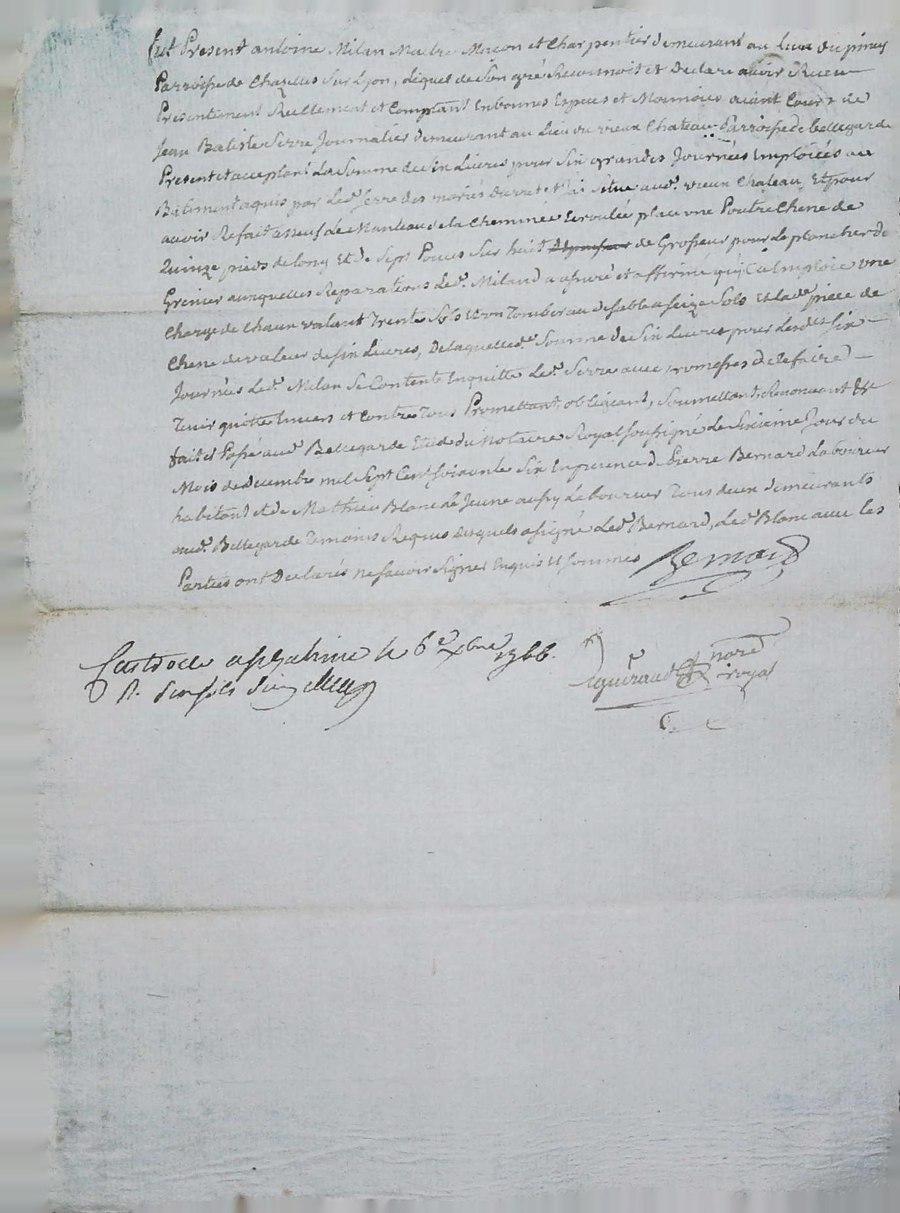 fut Present antoine Milan Maitre Macon et Charpentier demeurant au lieu du piney
Parroisse de Chazelles Sur Lyon, Lequel de Son gré Reconnoit et Declare avoir Receu
Presentement Reellement et Comptant En bonnes Especes et Monnoies aiant Cours de
Jean Batiste Serre Journalier demeurant au Lieu du vieux Chateau Parroisse de bellegarde
Present et acceptant La Somme de Six Livres pour Six grandes Journées Emploiées au
Bâtiment aquis par Led. Serre des mariés et situe aud. vieux Chateau, Et pour
avoir Refait a neuf Le Manteau de la Cheminée Ecroulée place une Poutre Chene de
Quinze pieds de long Et de Sept Pouces Sur huit de Grosseur pour Le plancher du
Grenier auxquelles Reparations Led. Miland a assuré et affirmé qu'il Emploie une
Charge de Chaux valant Trente Sols Et un Tombereau de Sable a seize Sols Et lad. piece de
Chene de valeur de six Livres, De laquelle d. Somme de Six Livres pour Lesd. Six
Journées Led. Milan Se Contente Enquitte Led. Serre avec promesses de Le faire
Tenir quitte Envers et Contre Tous Promettant, obligeant, Soumettant, Renonceant &c
fait et Passé aud. Bellegarde Etude du Notaire Royal Soussigné Le Sixieme Jour du
Mois de decembre mil Sept Cent Soixante Six En presence de Pierre Bernard Laboureur
habitant et de Matthieu Blanc Le Jeune aussy Laboureur Tous deux demeurants
aud. Bellegarde Temoins Requis desquels a signé Led. Bernard, Led. Blanc avec Les
Parties ont Declarés ne Savoir Signer Enquis Et Sommes Bernard
le 6e xbre 1766.
R. Six sols Six
nore
royal